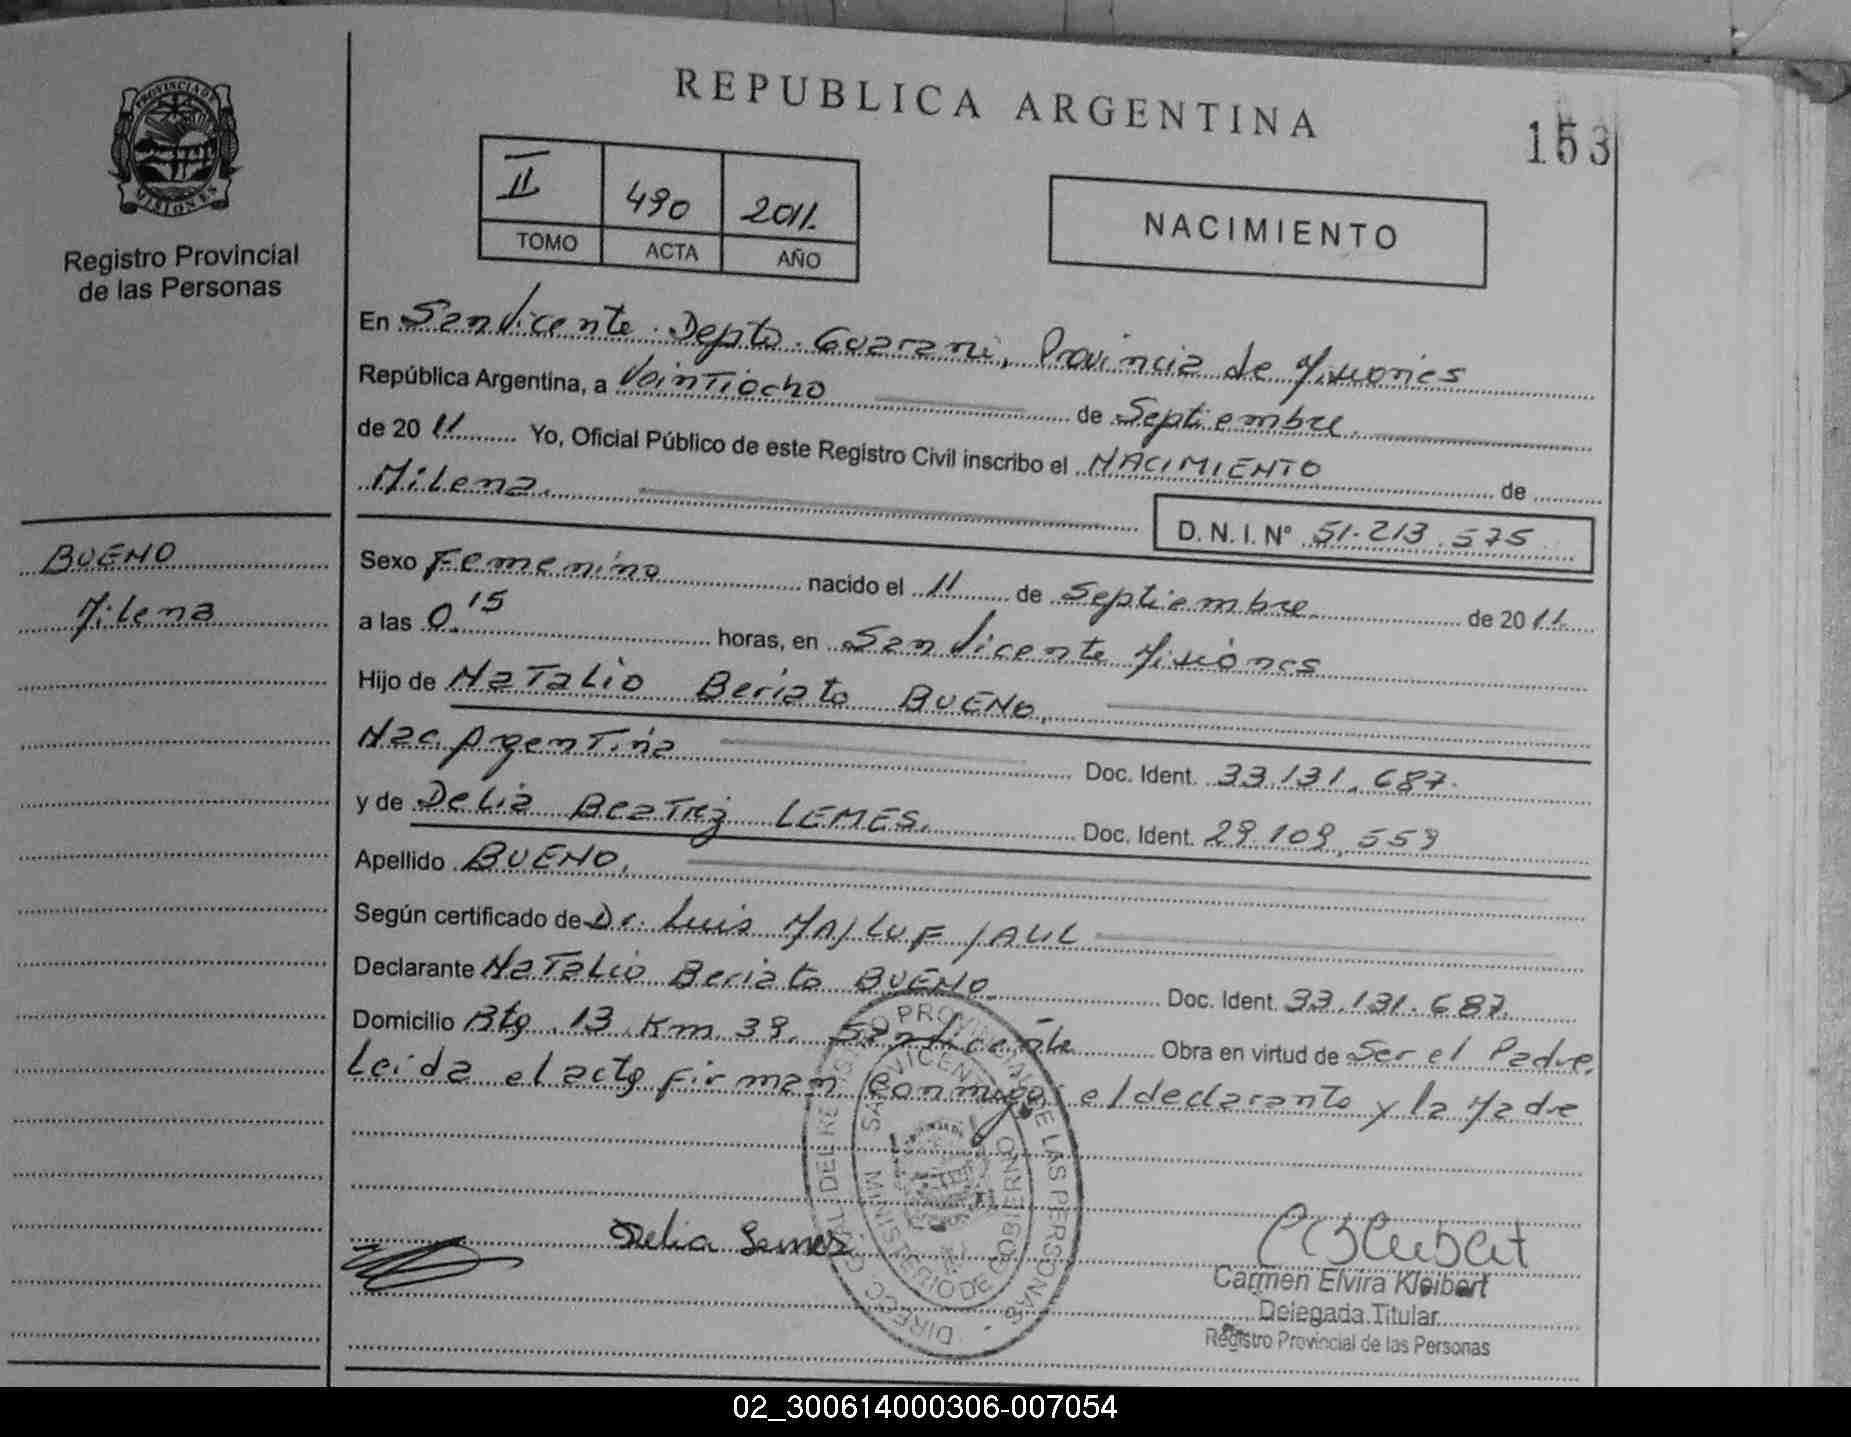 REPUBLICA ARGENTINA
153
PROVINCIA DE
MISIONES
Registro Provincial
de las Personas
II 490 2011.
TOMO ACTA AÑO
NACIMIENTO
En San Vicente. Depto. Guarani, Provincia de Misiones
República Argentina, a Veintiocho de Septiembre.
de 20 11 Yo, Oficial Público de este Registro Civil inscribo el NACIMIENTO de
Milena.
D. N. I. N° 51.213.575
BUENO
Milena
Sexo Femenino nacido el 11 de Septiembre. de 20 11.
a las 0.15 horas, en San Vicente Misiones
Hijo de Natalio Beriato BUENO.
Nac. Argentina Doc. Ident. 33.131.687.
y de Delia Beatriz LEMES. Doc. Ident. 29.109.559
Apellido BUENO.
Según certificado de Dr. Luis
Declarante Natalio Beriato BUENO. Doc. Ident. 33.131.687.
Domicilio Rta. 13 Km 39. San Vicente Obra en virtud de Ser el Padre.
Leida el acta firman conmigo el declarante y la Madre
DIREC. GRAL. DEL REGISTRO PROVINCIAL DE LAS PERSONAS
SAN VICENTE
MINISTERIO DE GOBIERNO
Delia Lemes
Carmen Elvira Kleibert
Delegada Titular
Registro Provincial de las Personas
02_300614000306-007054